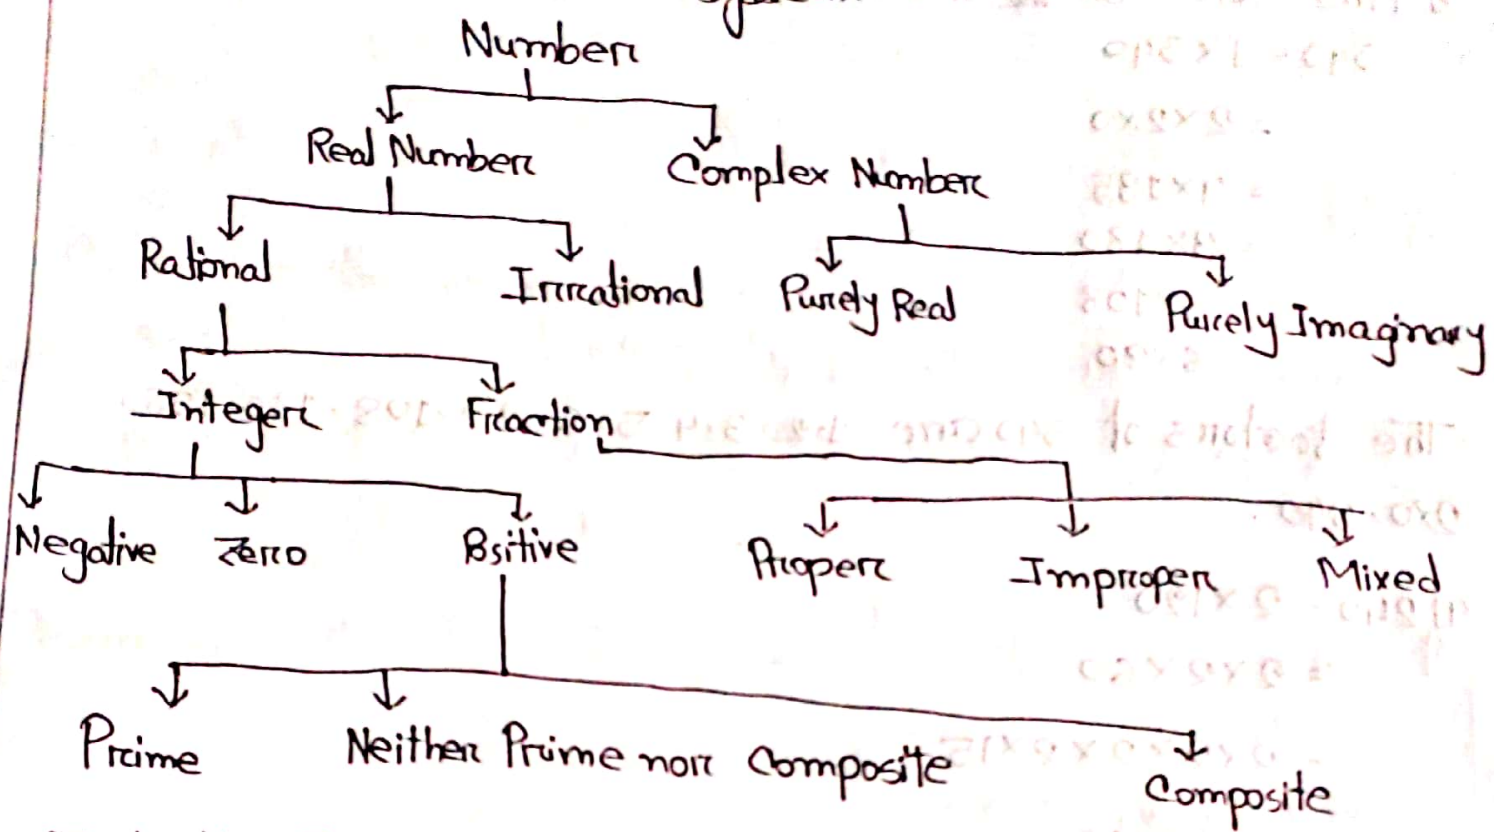 Number
Real Number Complex Number
Rational Irrational Purely Real Purely Imaginary
Integer Fraction
Negative Zero Positive Proper Improper Mixed
Prime Neither Prime nor Composite Composite